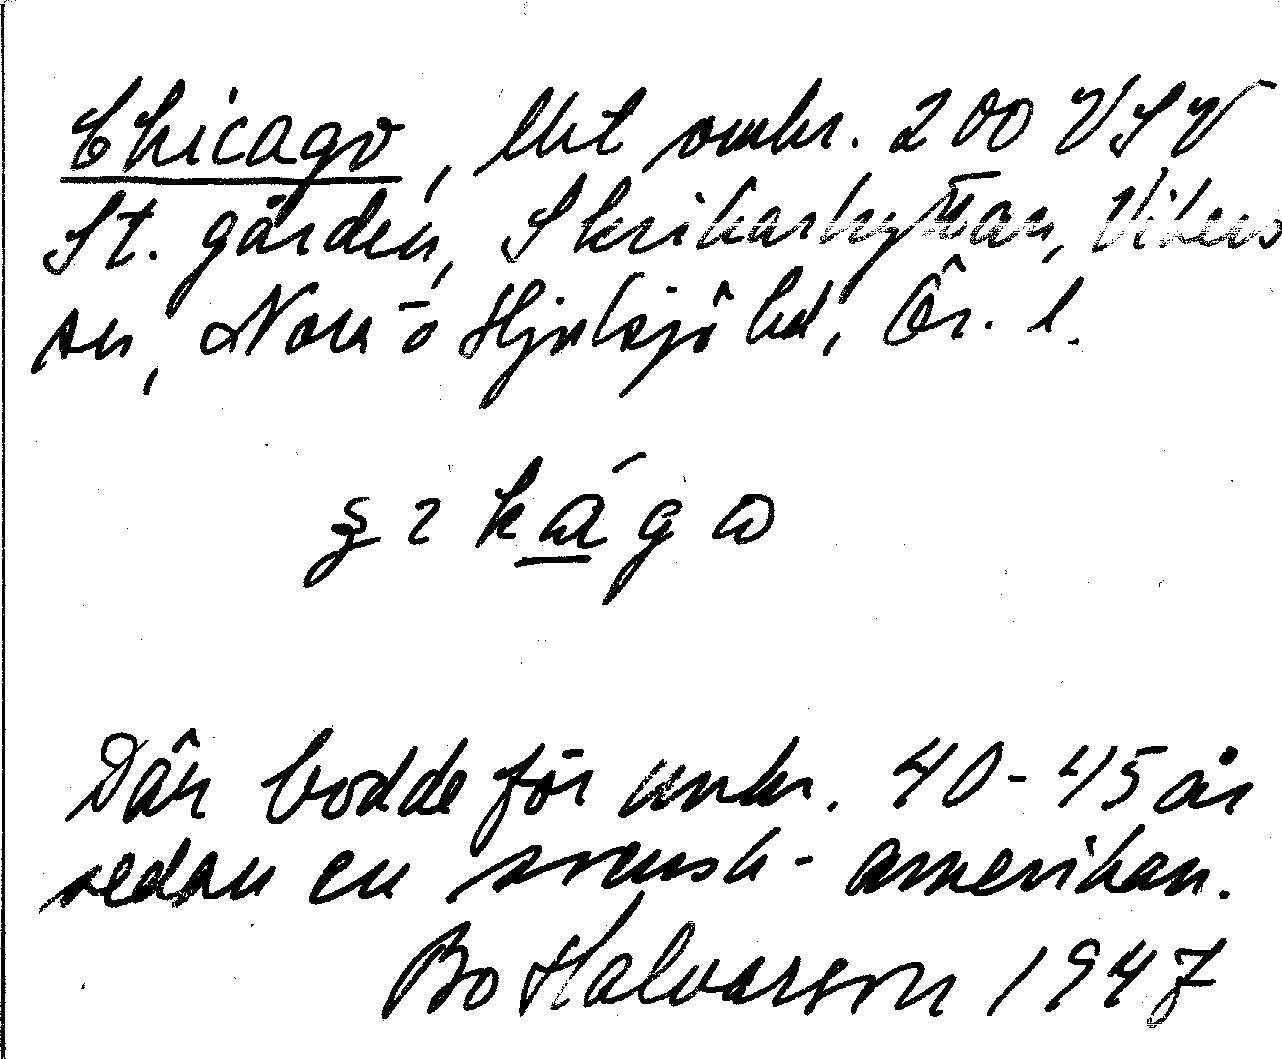 Chicago, lht omkr. 200 V S V
St. gården, Skrikarhyttan, Vikers
sn, Nora o Hjulsjö bd, Ör. l.
kágo
Där bodde för omkr. 40-45 år
sedan en svensk-amerikan.
Bo Halvarson 1947